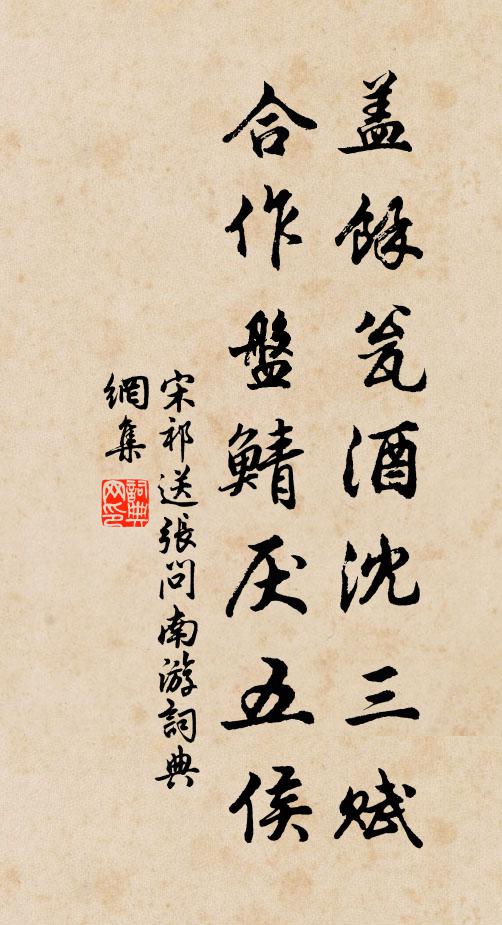 盖餘瓮酒沈三赋
合作盤鯖厌五侯
宋祁送張问南游詞典
網集
詞典
网印